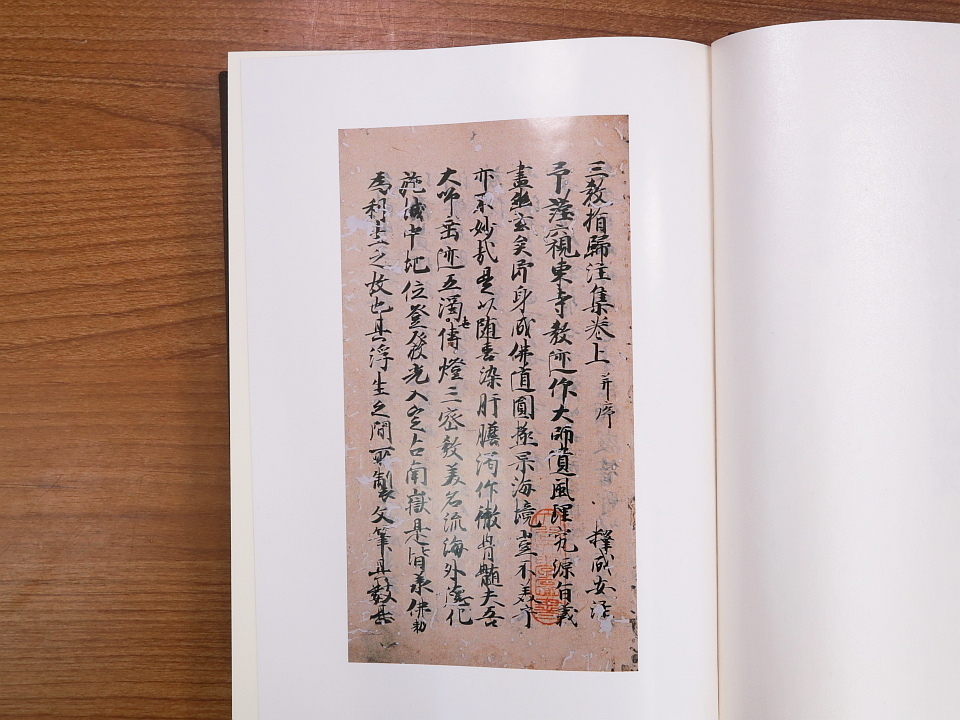 三教指歸注集卷上 并序 釋成安注
予竊視東寺教迹作大師遺風理究源百義
盡幽玄矣即身成佛道圓極果海境豈不美乎
亦不妙哉是以随喜染肝膽渇作徹骨髓夫吾
大師垂迹五濁世傳燈三密教美名流海外德化
施域中地位登發光入定占南嶽是皆承佛勅
為利生之故也其浮生之間所製文筆其數甚